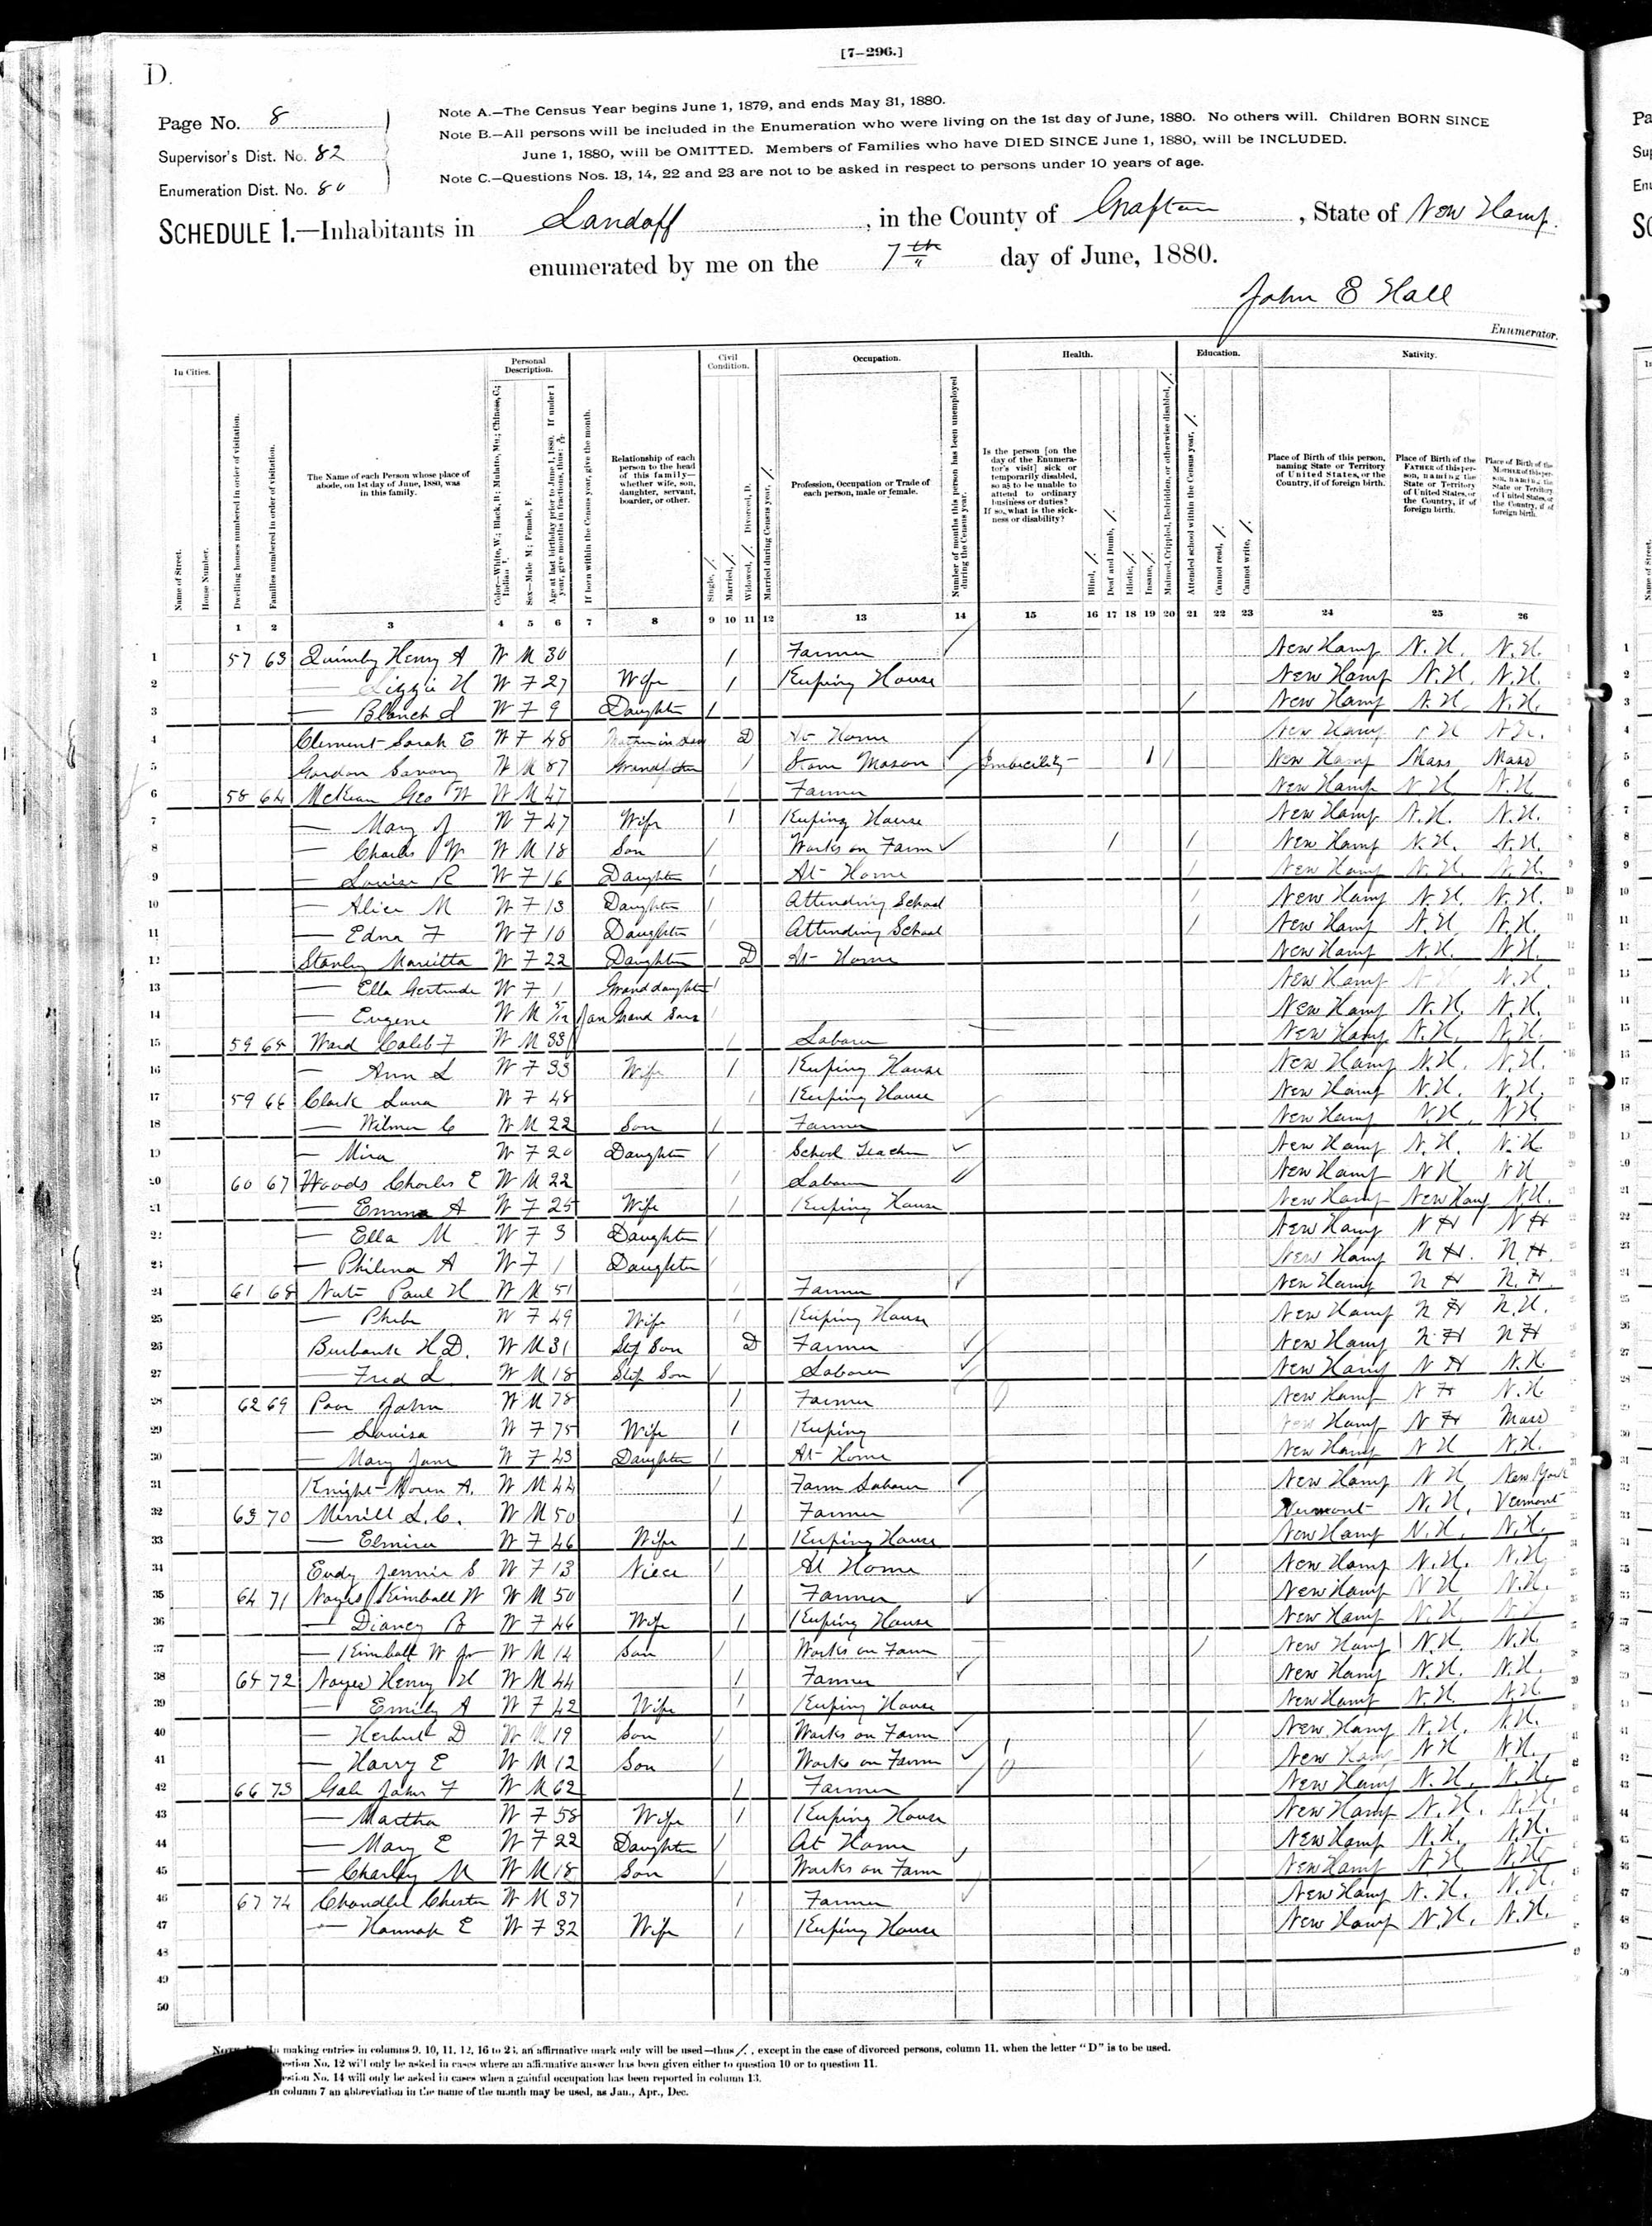 [7–296.]
D.
Page No. 8
Supervisor's Dist. No. 82
Enumeration Dist. No. 80
Note A.—The Census Year begins June 1, 1879, and ends May 31, 1880.
Note B.—All persons will be included in the Enumeration who were living on the 1st day of June, 1880. No others will. Children BORN SINCE
June 1, 1880, will be OMITTED. Members of Families who have DIED SINCE June 1, 1880, will be INCLUDED.
Note C.—Questions Nos. 13, 14, 22 and 23 are not to be asked in respect to persons under 10 years of age.
SCHEDULE 1.—Inhabitants in Landaff, in the County of Grafton, State of New Hamp.
enumerated by me on the 7th day of June, 1880.
John E Hall
Enumerator.
In Cities. Personal Description. Civil Condition. Occupation. Health. Education. Nativity.
Name of Street.
House Number.
Dwelling houses numbered in order of visitation.
Families numbered in order of visitation.
The Name of each Person whose place of abode, on 1st day of June, 1880, was in this family.
Color—White, W.; Black, B.; Mulatto, Mu.; Chinese, C.; Indian, I.
Sex—Male M.; Female, F.
Age at last birthday prior to June 1, 1880. If under 1 year, give months in fractions, thus: 3/12.
If born within the Census year, give the month.
Relationship of each person to the head of this family—whether wife, son, daughter, servant, boarder, or other.
Single, /.
Married, /.
Widowed, /. Divorced, D.
Married during Census year, /.
Profession, Occupation or Trade of each person, male or female.
Number of months this person has been unemployed during the Census year.
Is the person [on the day of the Enumerator's visit] sick or temporarily disabled, so as to be unable to attend to ordinary business or duties? If so, what is the sickness or disability?
Blind, /.
Deaf and Dumb, /.
Idiotic, /.
Insane, /.
Maimed, Crippled, Bedridden, or otherwise disabled, /.
Attended school within the Census year, /.
Cannot read, /.
Cannot write, /.
Place of Birth of this person, naming State or Territory of United States, or the Country, if of foreign birth.
Place of Birth of the FATHER of this person, naming the State or Territory of United States, or the Country, if of foreign birth.
Place of Birth of the MOTHER of this person, naming the State or Territory of United States, or the Country, if of foreign birth.
1 2 3 4 5 6 7 8 9 10 11 12 13 14 15 16 17 18 19 20 21 22 23 24 25 26
1 57 63 Quimby Henry A W M 30 / Farmer New Hamp N.H. N.H.
2 — Lizzie H W F 27 Wife / Keeping House New Hamp N.H. N.H.
3 — Blanch L W F 9 Daughter / / New Hamp N.H. N.H.
4 Clement Sarah E W F 48 Mother in law D At Home New Hamp N.H.
5 Gordon W M 87 Grandfather / Stone Mason Imbecility / / New Hamp Mass Mass
6 58 64 McKean Geo W W M 47 / Farmer New Hamp N.H. N.H.
7 — Mary J W F 47 Wife / Keeping House New Hamp N.H. N.H.
8 — Charles W W M 18 Son / Works on Farm / / New Hamp N.H. N.H.
9 — Louisa R W F 16 Daughter / At Home / New Hamp N.H. N.H.
10 — Alice M W F 13 Daughter / Attending School / New Hamp N.H. N.H.
11 — Edna F W F 10 Daughter / Attending School / New Hamp N.H. N.H.
12 Stanley Marietta W F 22 Daughter D At Home New Hamp N.H. N.H.
13 — Ella Gertrude W F 1 Grand daughter / New Hamp N.H. N.H.
14 — Eugene W M 5/12 Jan Grand Son / New Hamp N.H. N.H.
15 59 65 Ward Caleb F W M 33 / Laborer New Hamp N.H. N.H.
16 — Ann L W F 33 Wife / Keeping House New Hamp N.H. N.H.
17 59 66 Clark W F 48 / Keeping House New Hamp N.H. N.H.
18 — Wilmer C W M 22 Son / Farmer New Hamp N.H. N.H.
19 — Mira W F 20 Daughter / School Teacher New Hamp N.H. N.H.
20 60 67 Woods Charles E W M 22 / Laborer New Hamp N H N H
21 — Emma A W F 25 Wife / Keeping House New Hamp New Hamp N.H.
22 — Ella M W F 3 Daughter / New Hamp N H N H
23 — Philena A W F 1 Daughter / New Hamp N H. N.H.
24 61 68 Nute Paul H W M 51 / Farmer New Hamp N H N.H.
25 — Phebe W F 49 Wife / Keeping House New Hamp N H N.H.
26 Burbank H.D. W M 31 Step Son D Farmer New Hamp N H N H
27 — Fred L W M 18 Step Son / Laborer New Hamp N H N.H.
28 62 69 Poor John W M 78 / Farmer New Hamp N H N.H.
29 — Louisa W F 75 Wife / Keeping New Hamp N H Mass
30 — Mary Jane W F 43 Daughter / At Home New Hamp N H N.H.
31 Knight A. W M 44 / Farm Laborer New Hamp N H New York
32 63 70 Merrill L.C. W M 50 / Farmer Vermont N.H. Vermont
33 — Elmira W F 46 Wife / Keeping House New Hamp N.H. N.H.
34 Eudy Jennie S W F 13 Niece / At Home / New Hamp N.H. N.H.
35 64 71 Noyes Kimball W W M 50 / Farmer New Hamp N H N.H.
36 — Diancy B W F 46 Wife / Keeping House New Hamp N.H. N.H.
37 — Kimball W Jr W M 14 Son / Works on Farm / New Hamp N.H. N.H.
38 65 72 Noyes Henry H W M 44 / Farmer New Hamp N.H. N.H.
39 — Emily A W F 42 Wife / Keeping House New Hamp N.H. N.H.
40 — Herbert D W M 19 Son / Works on Farm / New Hamp N.H. N.H.
41 — Harry E W M 12 Son / Works on Farm / New Hamp N H N.H.
42 66 73 Gale John F W M 62 / Farmer New Hamp N.H. N.H.
43 — Martha W F 58 Wife / Keeping House New Hamp N.H. N.H.
44 — Mary E W F 22 Daughter / At Home New Hamp N.H. N.H.
45 — Charley M W M 18 Son / Works on Farm / New Hamp N H N.H.
46 67 74 Chandler Chester W M 37 / Farmer New Hamp N.H. N.H.
47 — Hannah E W F 32 Wife / Keeping House New Hamp N.H. N.H.
48
49
50
In making entries in columns 9, 10, 11, 12, 16 to 23, an affirmative mark only will be used—thus /., except in the case of divorced persons, column 11, when the letter "D" is to be used.
Question No. 12 will only be asked in cases where an affirmative answer has been given either to question 10 or to question 11.
Question No. 14 will only be asked in cases when a gainful occupation has been reported in column 13.
In column 7 an abbreviation in the name of the month may be used, as Jan., Apr., Dec.